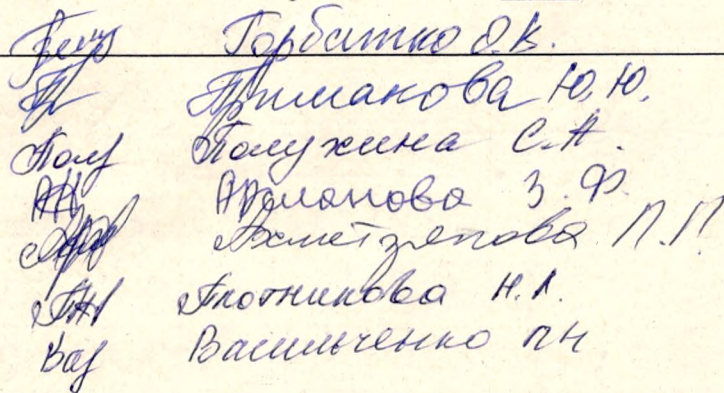 Горбатко О.В.
Примакова Ю.Ю.
Полу Полухина С.А.
Арманова З.Ф.
Ахметзянова Л.П.
Плотникова Н.А.
Вас Васильченко ПН